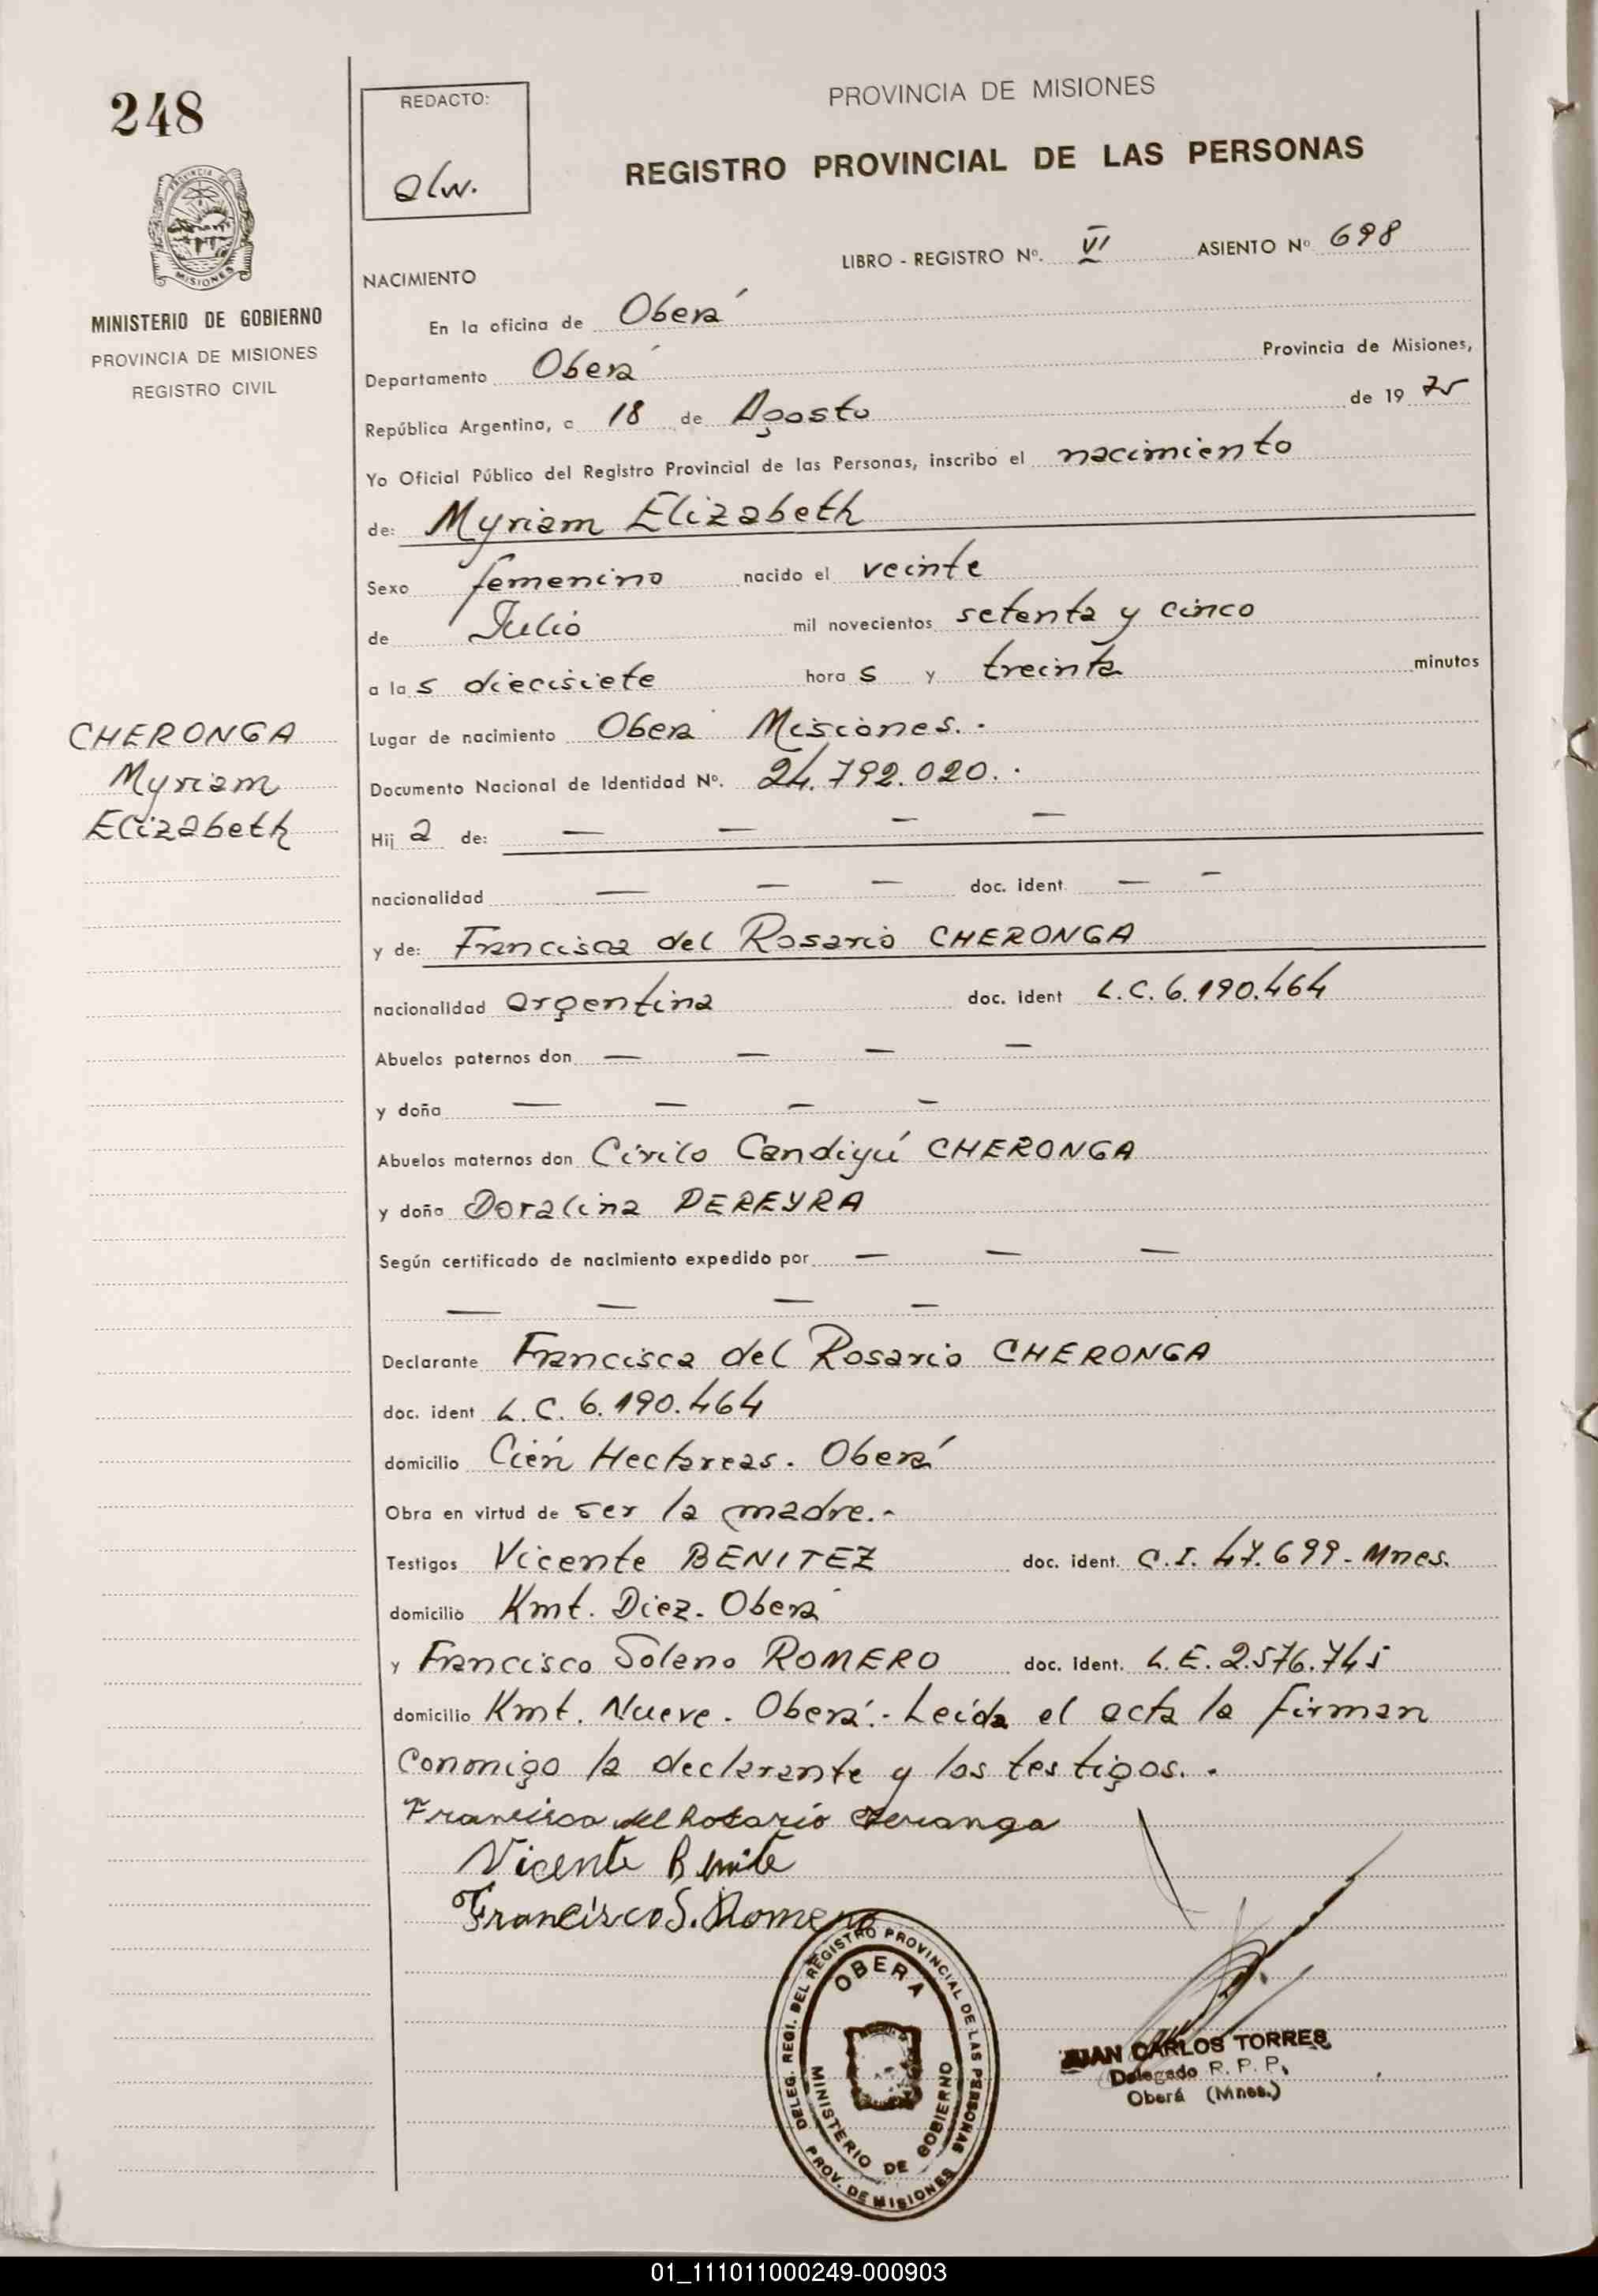 248
PROVINCIA DE MISIONES
MINISTERIO DE GOBIERNO
PROVINCIA DE MISIONES
REGISTRO CIVIL
CHERONGA
Myriam
Elizabeth
REDACTO:
alw.
PROVINCIA DE MISIONES
REGISTRO PROVINCIAL DE LAS PERSONAS
LIBRO - REGISTRO Nº. VI ASIENTO Nº 698
NACIMIENTO
En la oficina de Oberá
Departamento Oberá Provincia de Misiones,
República Argentina, a 18 de Agosto de 19 75
Yo Oficial Público del Registro Provincial de las Personas, inscribo el nacimiento
de: Myriam Elizabeth
Sexo femenino nacido el veinte
de Julio mil novecientos setenta y cinco
a la s diecisiete hora s y treinta minutos
Lugar de nacimiento Oberá Misiones.-
Documento Nacional de Identidad Nº. 24.792.020.-
Hij a de: — — — —
nacionalidad — — — doc. ident. — —
y de: Francisca del Rosario CHERONGA
nacionalidad argentina doc. ident L.C. 6.190.464
Abuelos paternos don — — — —
y doña — — — —
Abuelos maternos don Cirilo Candiyú CHERONGA
y doña Doralina PEREYRA
Según certificado de nacimiento expedido por — — —
— — — —
Declarante Francisca del Rosario CHERONGA
doc. ident L.C. 6.190.464
domicilio Cién Hectareas. Oberá
Obra en virtud de ser la madre.-
Testigos Vicente BENITEZ doc. ident. C.I. 47.699-Mnes.
domicilio Kmt. Diez. Oberá
y Francisco Soleno ROMERO doc. ident. L.E. 2.576.745
domicilio Kmt. Nueve. Oberá.- Leída el acta la firman
conmigo la declarante y los testigos.-
Francisca del Rosario Cheranga
Vicente Benite
Francisco S. Romero
DELEG. REGI. DEL REGISTRO PROVINCIAL DE LAS PERSONAS
OBERA
MINISTERIO DE GOBIERNO
PROV. DE MISIONES
JUAN CARLOS TORRES
Delegado R. P. P.
Oberá (Mnes.)
01_111011000249-000903